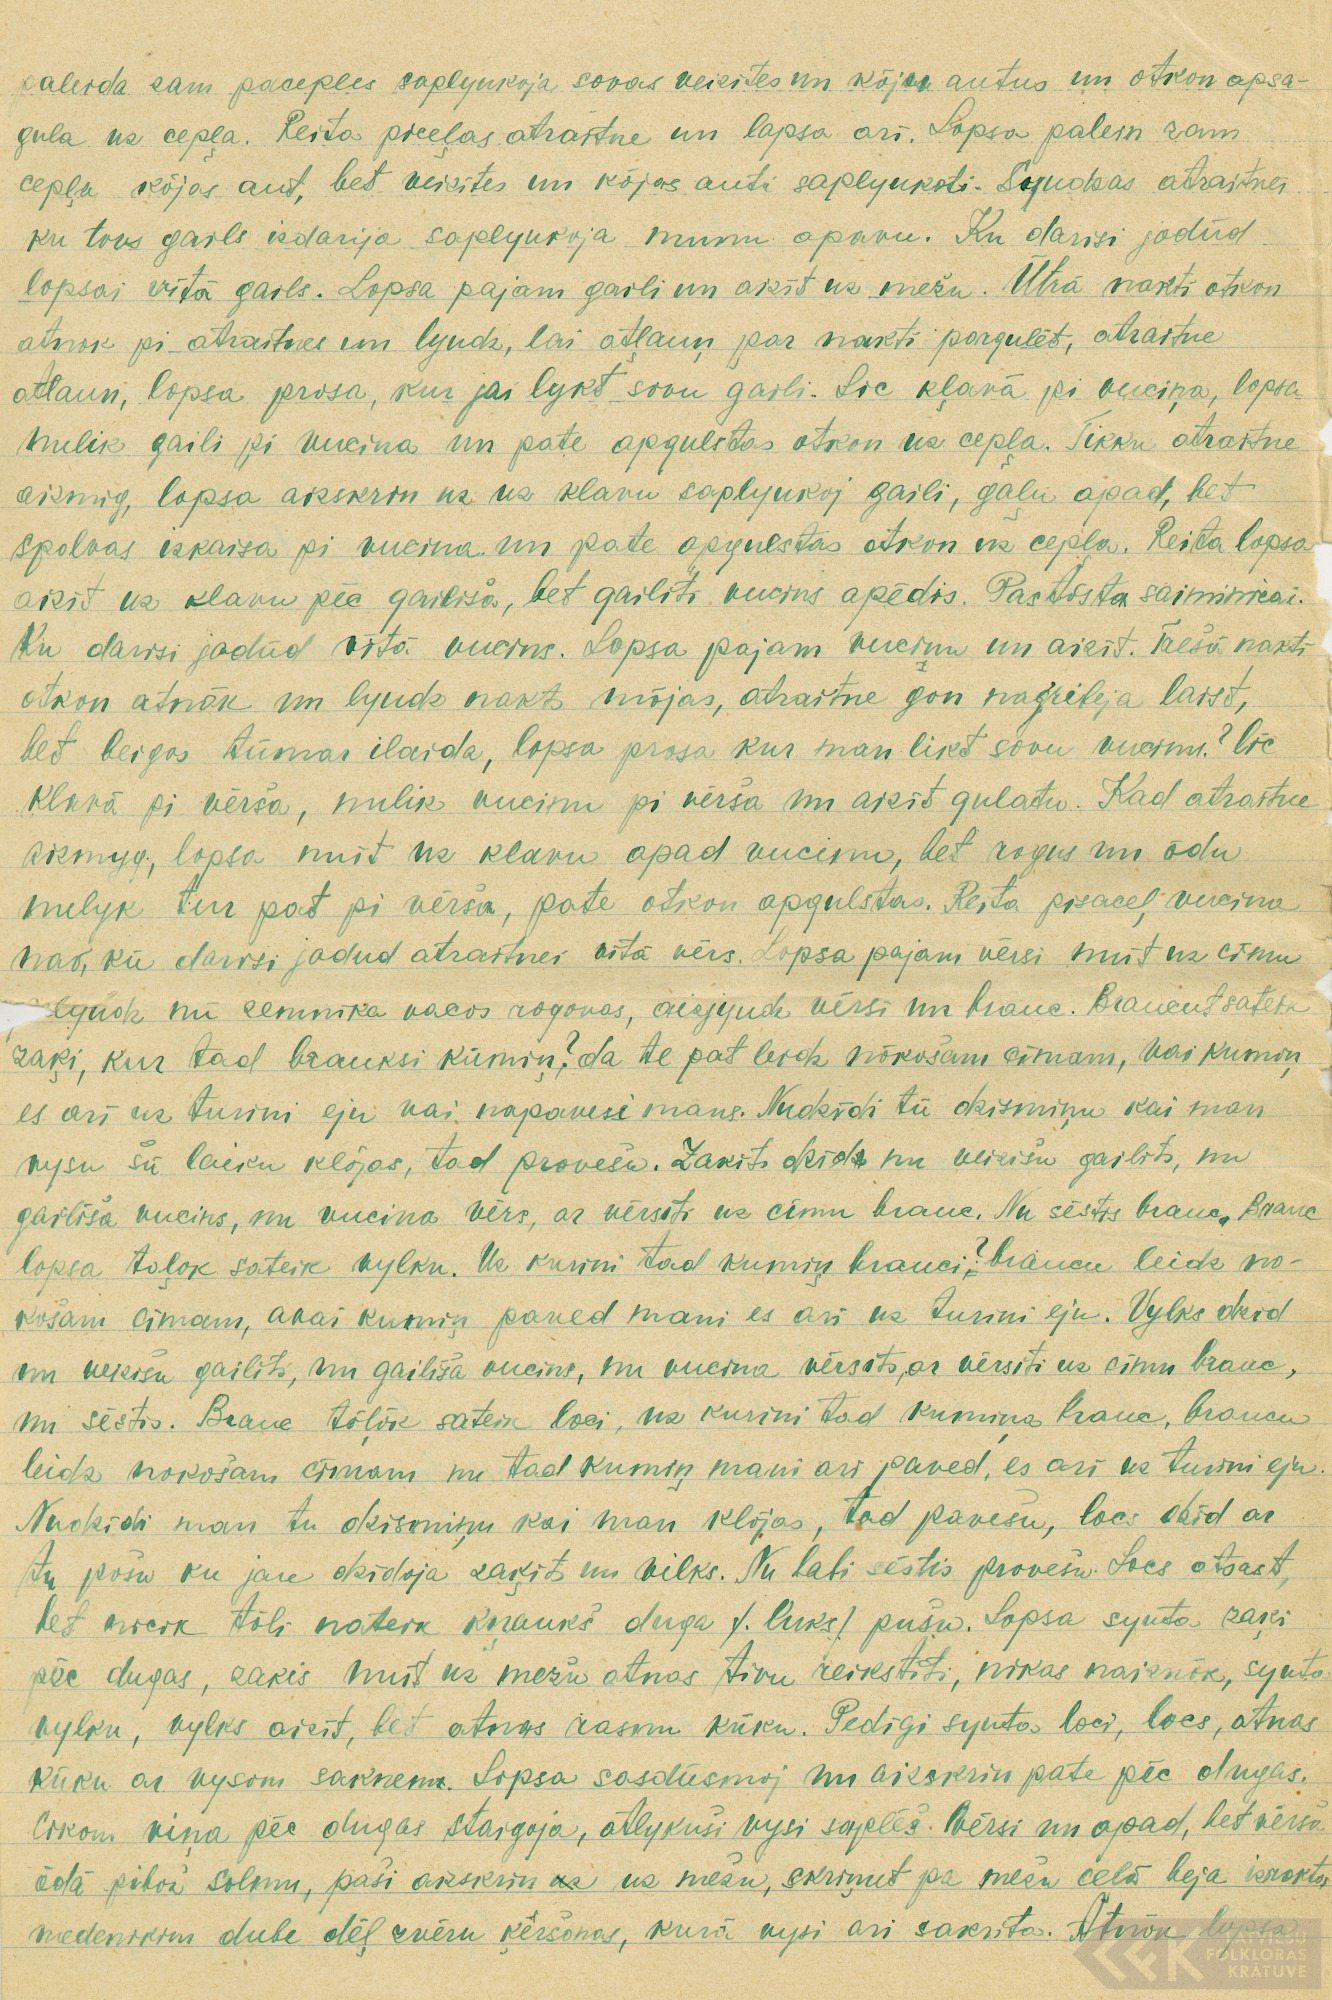 paleida zam paceples saplyukoja sovas veizites un kōju autus un otkon apsa-
gula uz cepļa. Reitā pieceļas atraitne un lapsa ari. Lopsa palein zam
cepļa kōjas aut, bet veizites un kōjas auti saplyukoti. Syudzas atraitnei
ku tovs gails izdarija saplyukoja munu apavu. Ku darisi jodūd
lopsai vītā gails. Lopsa pajam gaili un aizīt uz mežu. Ūtrā nakti otkon
atnok pi atraitnes un lyudz, lai atļaun par nakti pargulēt, atraitne
atļaun, lopsa prosa, kur jai lykt sovu gaili. Lic kļavā pi vuciņa, lopsa
nulik gaili pi vucina un pate apgulstas otkon uz cepļa. Tikku atraitne
aizmig, lopsa aizskrin uz uz klavu saplyukoj gaili, gaļu apad, bet
spolvas izkaisa pi vucina un pate apgulstas otkon uz cepļa. Reita lopsa
aizīt uz klavu pēc gailiša, bet gailiti vucins apēdis. Pastōsta saiminicai.
Ku darisi jodūd vītā vucins. Lopsa pajam vuciņu un aizīt. Trešā nakti
otkon atnōk un lyudz nakts mōjas, atraitne gon nagribeja laist,
bet beigos tūmar ilaida, lopsa prosa kur man likt sovu vucinu? līc
klavā pi vērša, nulik vucinu pi vērša un aizīt gulatu. Kad atraitne
aizmyg, lopsa nuīt uz klavu apad vucinu, bet rogus un ōdu
nulyk tur pat pi vērša, pate otkon apgulstas. Reita pisaceļ, vucina
nav, kū darisi jodud atraitnei vītā vērs. Lopsa pajam vērsi nuīt uz cīmu
lyudz nu zemnika vacos rogovas, aizjyudz vērsi un brauc. Braucut sateik
zaķi, kur tad brauksi kūmiņ? da te pat leidz nōkošam cīmam, vai kumiņ
es ari uz turini eju vai napavesi mans. Nudzīdi tū dzismiņu kai man
vysu šū laiku klōjas, tad provešu. Zakits dzīd nu veizišu gailīts, nu
gailiša vucins, nu vucina vērs, ar vērsiti uz cīmu brauc. Nu sēstis brauc. Brauc
lopsa toļok sateik vylku. Uz kurini tad kumiņ brauci? braucu leidz no-
košam cīmam, avai kumiņ paved mani es ari uz turini eju. Vylks dzid
nu veizišu gailīts, nu gailiša vucins, nu vucina vērsits, ar vērsiti uz cīmu brauc,
nu sēstis. Brauc tōļōk sateik loci, uz kurini tad kumiņa brauc, braucu
leidz nokošam cīmam nu tad kumiņ mani ari paved, es ari uz turini eju.
Nudzīdi man tu dzismiņu kai man klōjas, tad pavešu, locs dzīd ar
tu pošu ku jau dzidoja zaķits un vilks. Nu labi sēstis provešu. Locs atsast,
bet nicik tōli nateik kņaukš duga /. luks/ pušu. Lopsa syuta zaķi
pēc dugas, zakis nuīt uz mežu atnas tivu reikstīti, nikas naiznōk, syuta
vylku, vylks aizīt, bet atnas rasnu kūku. Pedigi syuta loci, locs, atnas
kūku ar vysom saknem. Lopsa sasdūsmoj un aizskrin pate pēc dugas.
Cikom viņa pēc dugas staigoja, atlykuši vysi saplēš vērsi un apad, bet vērša
ōdā pibož solmu, paši aizskrin uz mežu, skriņut pa mežu ceļā beja izrokta
medenikim dube dēļ zvēru ķēršonas, kurā vysi ari sakrita. Atnōk lopsa
LATVIEŠU
FOLKLORAS
KRĀTUVE